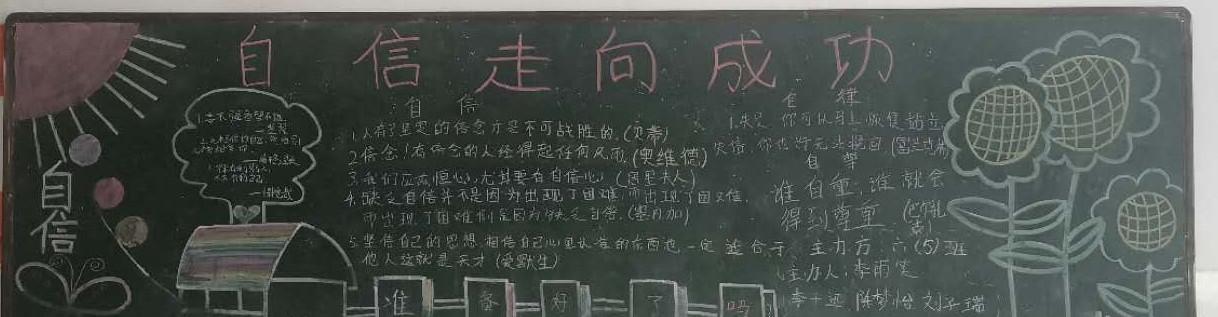 自信走向成功
自信
自信
1.人有了坚定的信念才是不可战胜的。(贝蒂)
2.信念!有信念的人经得起任何风雨。(奥维德)
3.我们应有恒心,尤其要有自信心!(居里夫人)
4.缺乏自信并不是因为出现了困难,而出现了困难,
而出现了困难倒是因为缺乏自信。(塞内加)
5.坚信自己的思想,相信自己心里认准的东西也一定适合于
他人这就是天才(爱默生)
自律
1.失足,你可以马上恢复站立,
失信,你也许无法挽回。(富兰克林)
自尊
谁自重,谁就会
得到尊重。(巴尔扎克)
主办方:六(5)班
主办人:李雨笑
陈梦怡 刘子瑞
准备好了吗